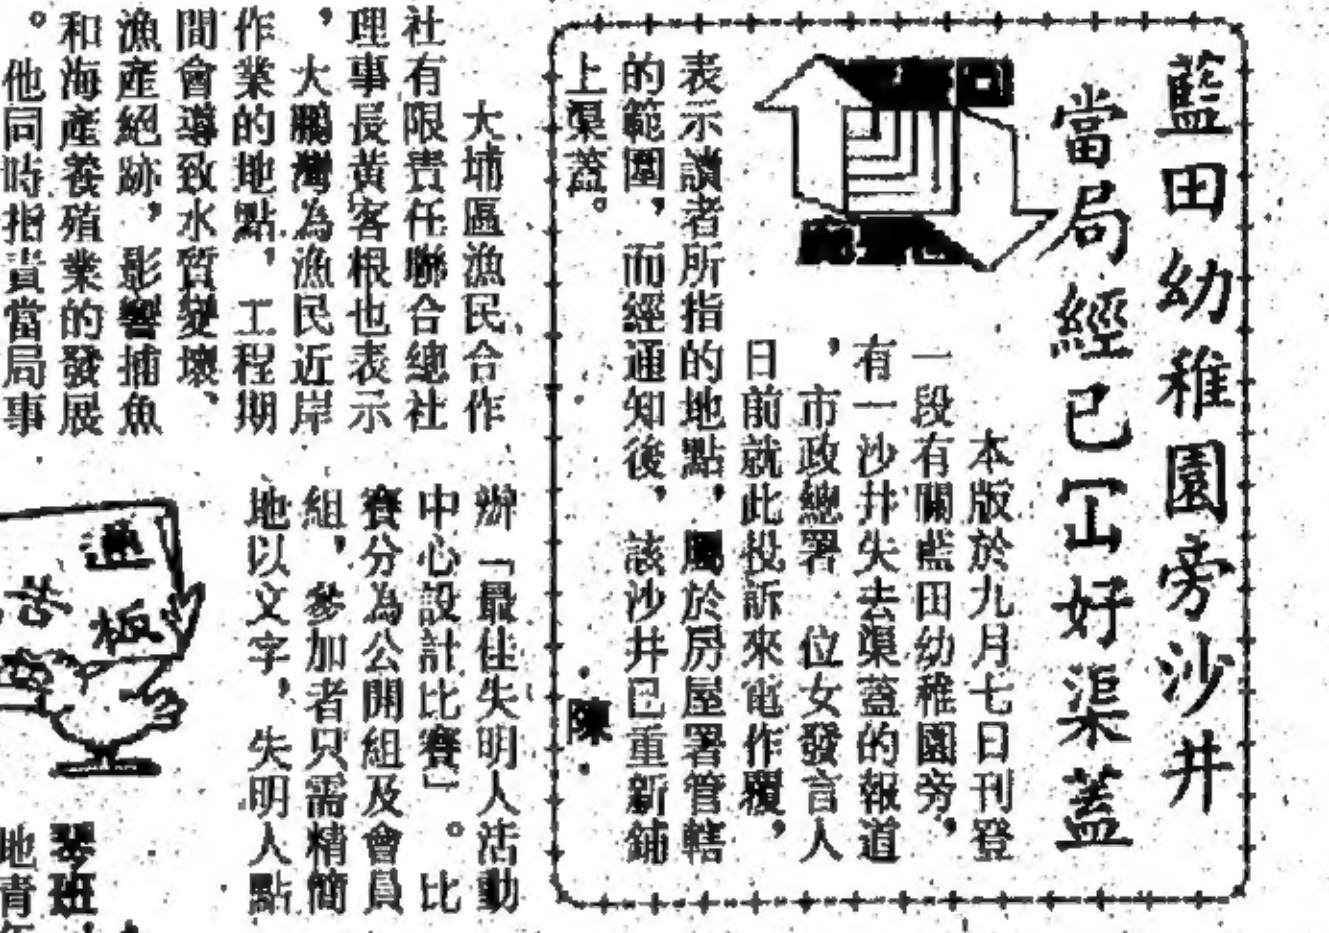 藍田幼稚園旁沙井
當局經已冚好渠蓋
本版於九月七日刊登
一段有關藍田幼稚園旁,
有一沙井失去渠蓋的報道
,市政總署 位女發言人
日前就此投訴來電作覆,
表示讀者所指的地點,屬於房屋署管轄
的範圍,而經通知後,該沙井已重新鋪
上渠蓋。
·陳·
大埔區漁民合作
社有限責任聯合總社
理事長黃客根也表示
,大鵬灣為漁民近岸
作業的地點,工程期
間會導致水質變壞、
漁產絕跡,影響捕魚
和海產養殖業的發展
。他同時指責當局事
辦「最佳失明人活動
中心設計比賽」。比
賽分為公開組及會員
組,參加者只需精簡
地以文字,失明人點
通
板
琴班
地青年